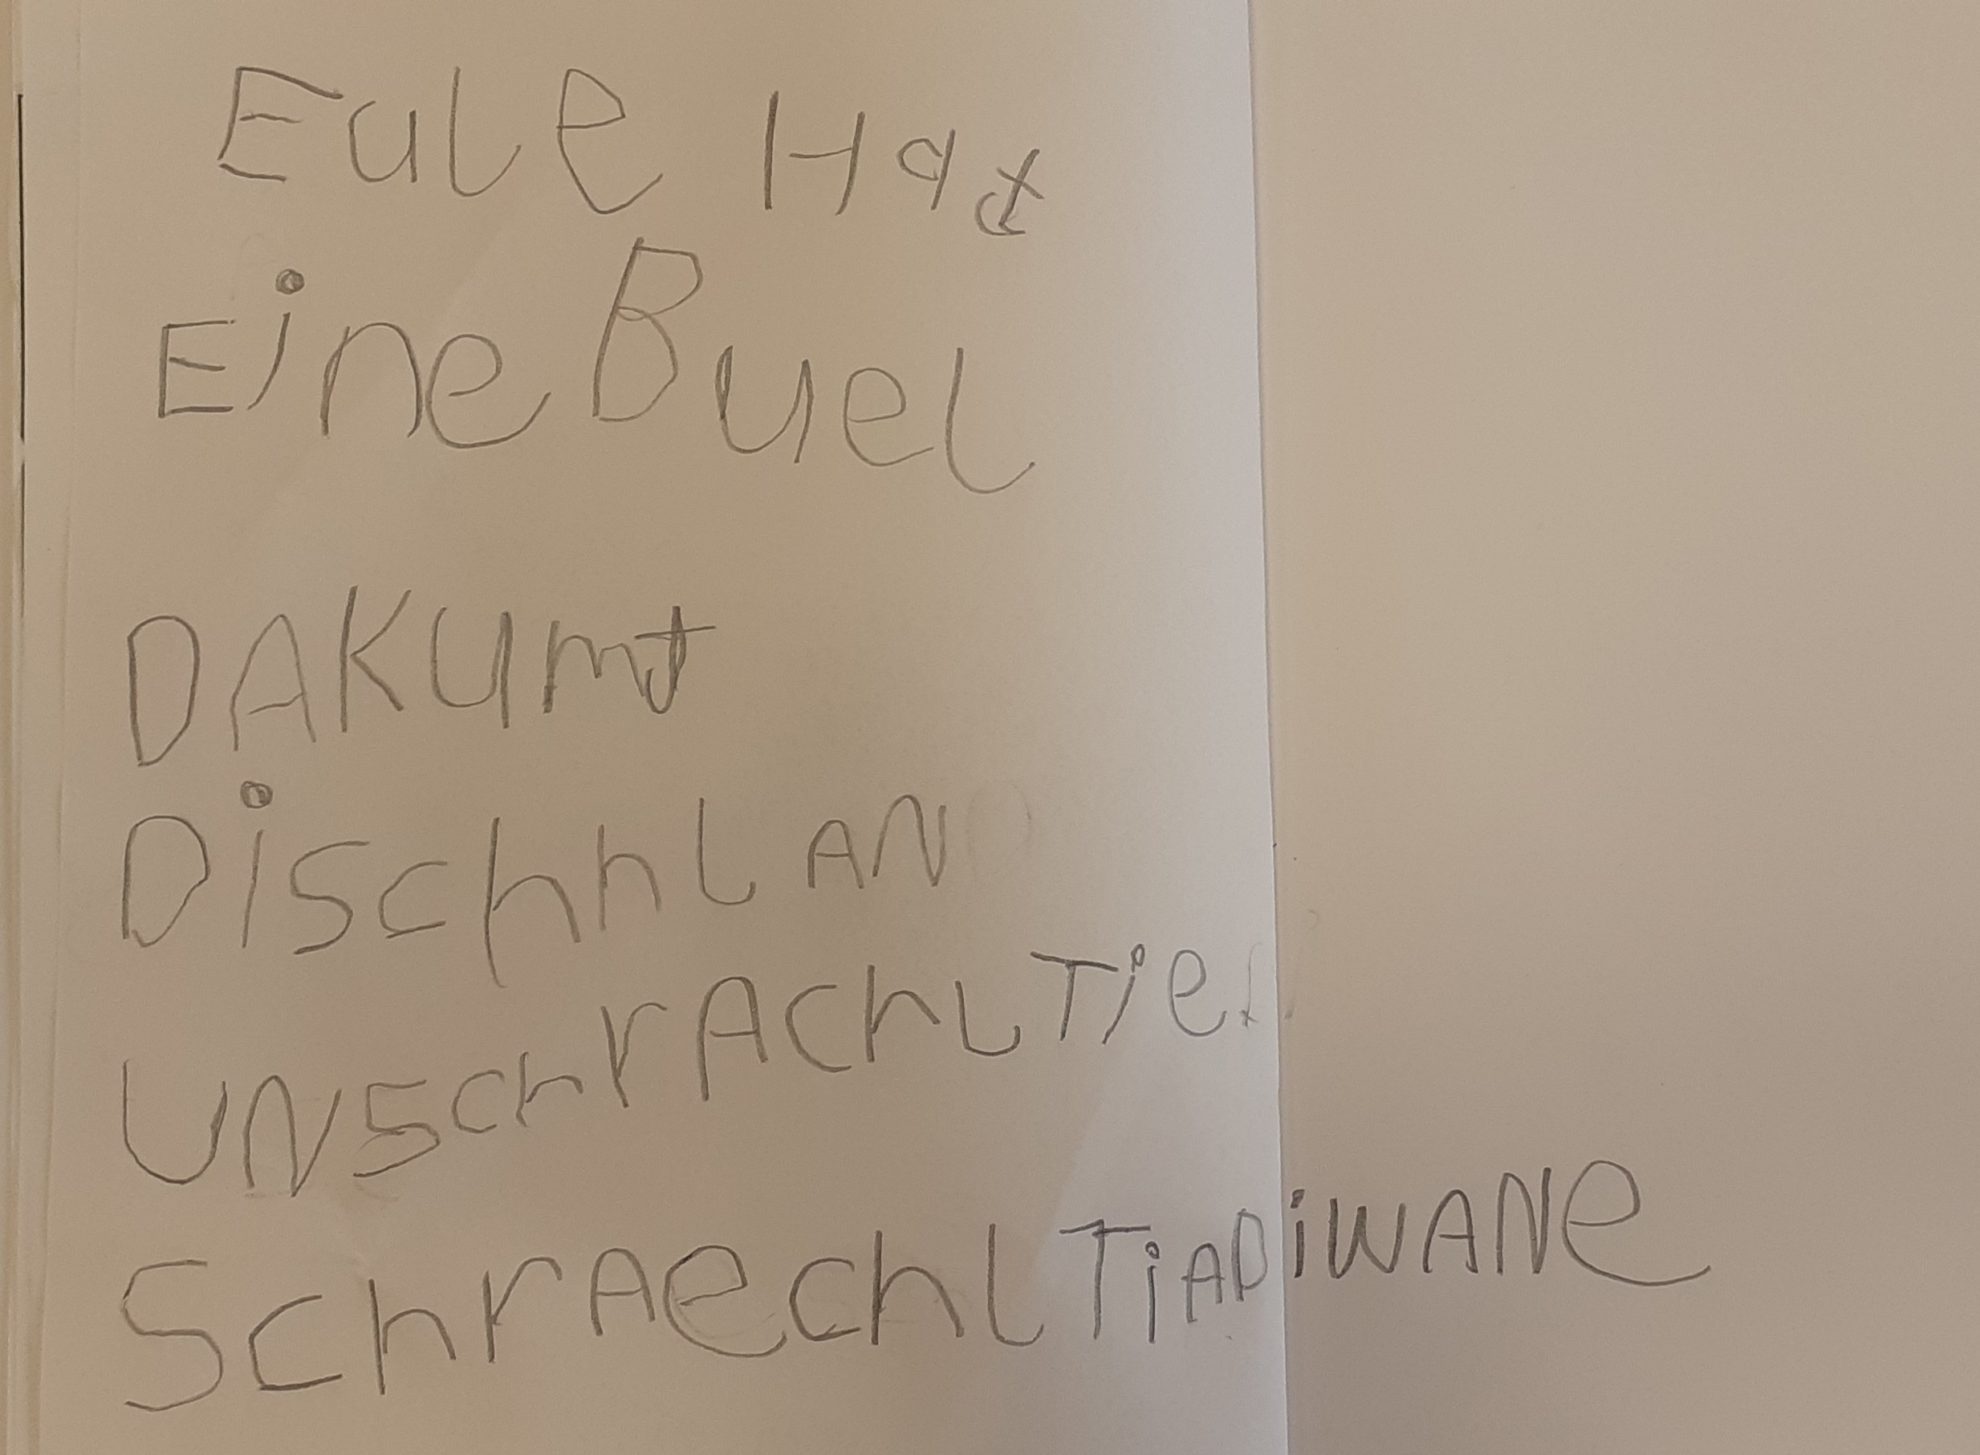 Eule Hat
Eine Buel
DAKumt
DischhLAN
UNSchrAchLTie
SchrAechLTiADiWANe